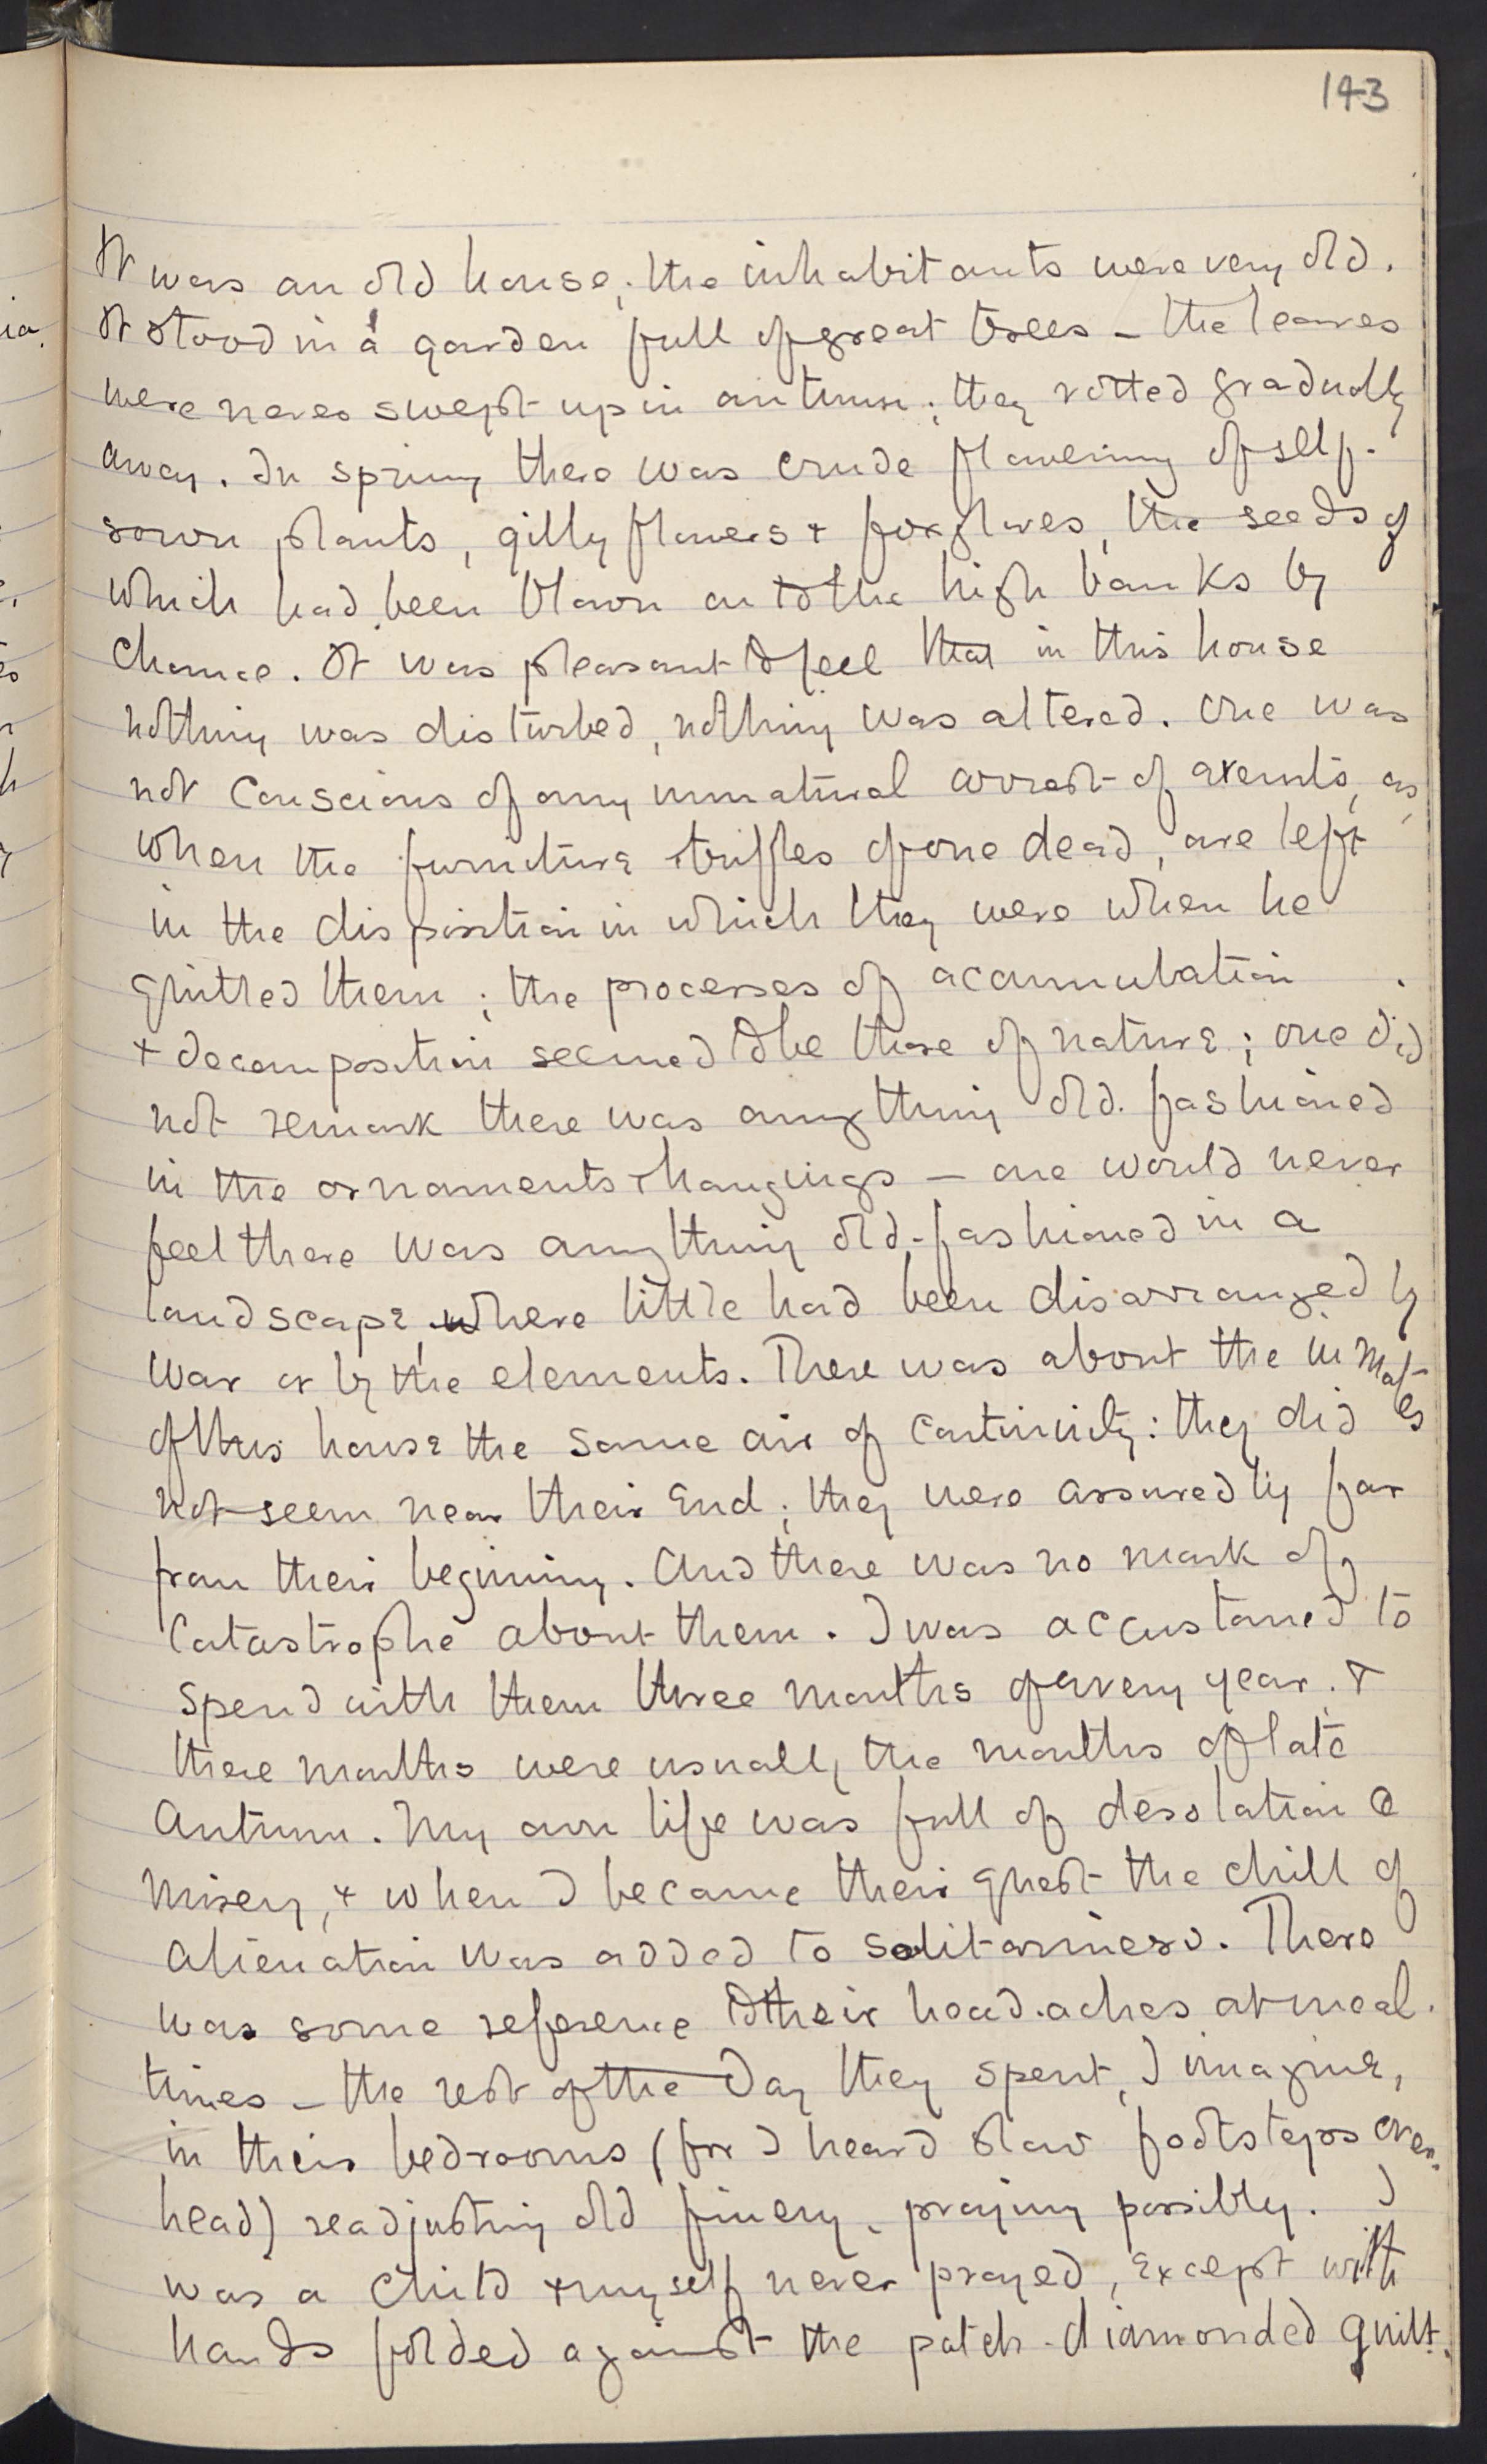 143
It was an old house; the inhabitants were very old.
It stood in a garden full of great trees – the leaves
were never swept up in autumn; they rotted gradually
away. In spring there was crude flowering of self-
sown plants, gilly flowers & foxgloves, the seeds of
which had been blown on to the high banks by
chance. It was pleasant to feel that in this house
nothing was disturbed, nothing was altered. One was
not conscious of any unnatural arrest of events, as
when the furniture & trifles of one dead, are left
in the disposition in which they were when he
quitted them; the processes of accumulation
& decomposition seemed to be those of nature; one did
not remark there was anything old-fashioned
in the ornaments & hangings – one would never
feel there was anything old-fashioned in a
landscape where little had been disarranged by
war or by the elements. There was about the inmates
of this house the same air of continuity: they did
not seem near their end; they were assuredly far
from their begining. And there was no mark of
catastrophe about them. I was accustomed to
spend with them three months of every year, &
these months were usually the months of late
Autumn. My own life was full of desolation &
misery, & when I became their guest the chill of
alienation was added to solitariness. There
was some reference to their head-aches at meal-
times – the rest of the day they spent, I imagine,
in their bedrooms (for I heard slow footsteps over-
head) readjusting old finery, praying possibly. I
was a child & myself never prayed, except with
hands folded against the patch-diamonded quilt.